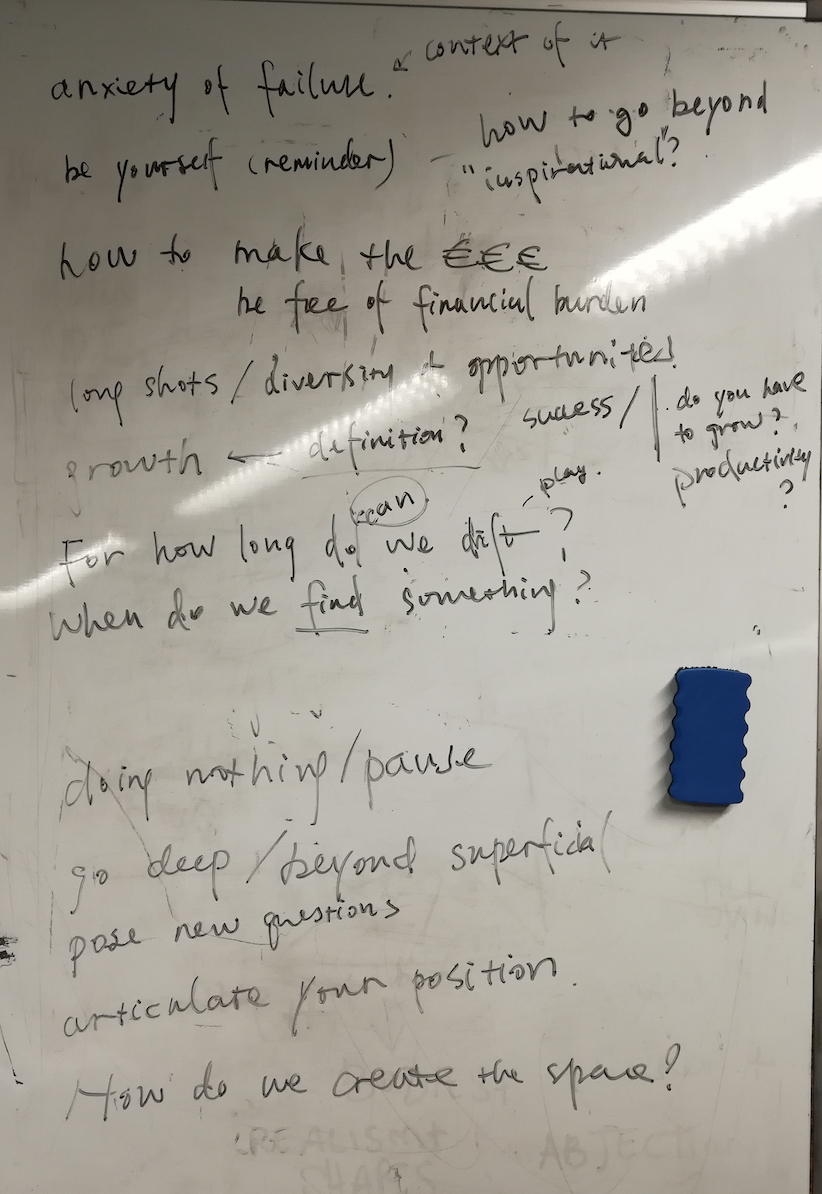 anxiety of failure.
context of it
be yourself (reminder)
how to go beyond
"inspirational"?
how to make the €€€
be free of financial burden
long shots / diversity of opportunities!
growth ← definition?
success /
do you have
to grow?
productivity
?
can
play.
For how long do we drift?
When do we find something?
doing nothing / pause
go deep / beyond superficial
pose new questions
articulate your position.
How do we create the space?
REALISM
SHAPES
ABJECTION